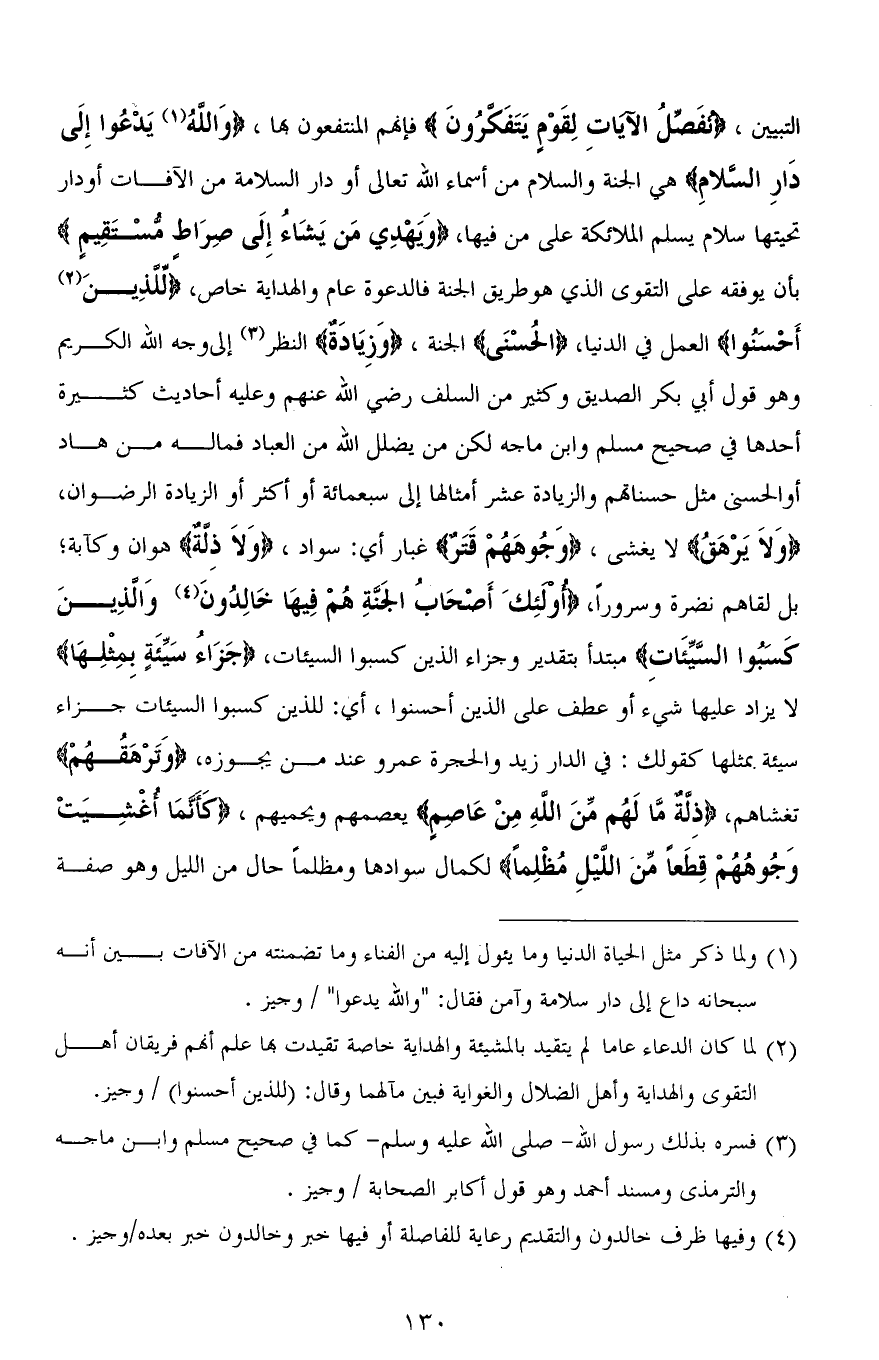 التبيين ، ﴿نُفَصِّلُ الآيَاتِ لِقَوْمٍ يَتَفَكَّرُونَ ﴾ فإنهم المنتفعون بها ، ﴿وَاللَّهُ(١) يَدْعُوا إِلَى
دَارِ السَّلامِ﴾ هي الجنة والسلام من أسماء الله تعالى أو دار السلامة من الآفات أودار
تحيتها سلام يسلم الملائكة على من فيها، ﴿وَيَهْدِي مَن يَشَاءُ إِلَى صِرَاطٍ مُّسْتَقِيمٍ ﴾
بأن يوفقه على التقوى الذي هوطريق الجنة فالدعوة عام والهداية خاص، ﴿لِّلَّذِينَ(٢)
أَحْسَنُوا﴾ العمل في الدنيا، ﴿الحُسْنَى﴾ الجنة ، ﴿وَزِيَادَةٌ﴾ النظر(٣) إلى وجه الله الكريم
وهو قول أبي بكر الصديق وكثير من السلف رضي الله عنهم وعليه أحاديث كثيرة
أحدها في صحيح مسلم وابن ماجه لكن من يضلل الله من العباد فماله من هاد
أوالحسنى مثل حسناتهم والزيادة عشر أمثالها إلى سبعمائة أو أكثر أو الزيادة الرضوان،
﴿وَلاَ يَرْهَقُ﴾ لا يغشى ، ﴿وُجُوهَهُمْ قَتَرٌ﴾ غبار أي: سواد ، ﴿وَلاَ ذِلَّةٌ﴾ هوان وكآبة؛
بل لقاهم نضرة وسروراً، ﴿أُوْلَئِكَ أَصْحَابُ الجَنَّةِ هُمْ فِيهَا خَالِدُونَ(٤) وَالَّذِينَ
كَسَبُوا السَّيِّئَاتِ﴾ مبتدأ بتقدير وجزاء الذين كسبوا السيئات، ﴿جَزَاءُ سَيِّئَةٍ بِمِثْلِهَا﴾
لا يزاد عليها شيء أو عطف على الذين أحسنوا ، أي: للذين كسبوا السيئات جزاء
سيئة بمثلها كقولك : في الدار زيد والحجرة عمرو عند من يجوزه، ﴿وَتَرْهَقُهُمْ﴾
تغشاهم، ﴿ذِلَّةٌ مَّا لَهُم مِّنَ اللَّهِ مِنْ عَاصِمٍ﴾ يعصمهم ويحميهم ، ﴿كَأَنَّمَا أُغْشِيَتْ
وُجُوهُهُمْ قِطَعاً مِّنَ اللَّيْلِ مُظْلِماً﴾ لكمال سوادها ومظلماً حال من الليل وهو صفة
(١) ولما ذكر مثل الحياة الدنيا وما يئول إليه من الفناء وما تضمنته من الآفات بين أنه
سبحانه داع إلى دار سلامة وآمن فقال: "والله يدعوا" / وجيز .
(٢) لما كان الدعاء عاما لم يتقيد بالمشيئة والهداية خاصة تقيدت بها علم أنهم فريقان أهل
التقوى والهداية وأهل الضلال والغواية فبين مآلهما وقال: (للذين أحسنوا) / وجيز.
(٣) فسره بذلك رسول الله- صلى الله عليه وسلم- كما في صحيح مسلم وابن ماجه
والترمذى ومسند أحمد وهو قول أكابر الصحابة / وجيز .
(٤) وفيها ظرف خالدون والتقديم رعاية للفاصلة أو فيها خبر وخالدون خبر بعده/وجيز .
١٣٠